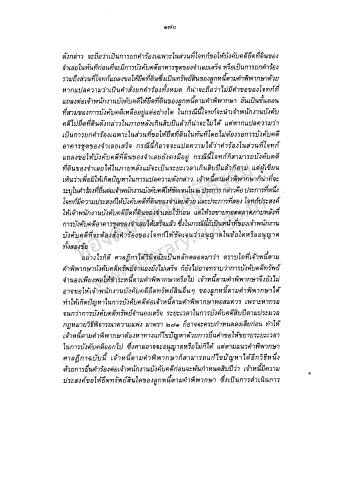 ๑๗๐
ดังกล่าว จะถือว่าเป็นการยกคำร้องเฉพาะในส่วนที่โจทก์ขอให้บังคับคดีที่ดินของ
จำเลยในทันทีก่อนที่จะมีการบังคับคดีอาคารชุดของจำเลยเสร็จ หรือเป็นการยกคำร้อง
รวมถึงส่วนที่โจทก์แถลงขอให้ยึดที่ดินซึ่งเป็นทรัพย์สินของลูกหนี้ตามคำพิพากษาด้วย
หากแปลความว่าเป็นคำสั่งยกคำร้องทั้งหมด ก็น่าจะถือว่าไม่มีคำขอของโจทก์ที่
แถลงต่อเจ้าพนักงานบังคับคดีให้ยึดที่ดินของลูกหนี้ตามคำพิพากษา อันเป็นขั้นตอน
ที่สามของการบังคับคดีเหลืออยู่แต่อย่างใด ในกรณีนี้โจทก์จะนำเจ้าพนักงานบังคับ
คดีไปยึดที่ดินดังกล่าวในภายหลังเกินสิบปีแล้วก็น่าจะไม่ได้ แต่หากแปลความว่า
เป็นการยกคำร้องเฉพาะในส่วนที่ขอให้ยึดที่ดินในทันทีโดยไม่ต้องรอการบังคับคดี
อาคารชุดของจำเลยเสร็จ กรณีนี้ก็อาจจะแปลความได้ว่าคำร้องในส่วนที่โจทก์
แถลงขอให้บังคับคดีที่ดินของจำเลยยังคงมีอยู่ กรณีนี้โจทก์ก็สามารถบังคับคดี
ที่ดินของจำเลยได้ในภายหลังแม้จะเป็นระยะเวลาเกินสิบปีแล้วก็ตาม แต่ผู้เขียน
เห็นว่าเพื่อมิให้เกิดปัญหาในการแปลความดังกล่าว เจ้าหนี้ตามคำพิพากษาก็น่าที่จะ
ระบุในคำร้องที่ยื่นต่อเจ้าพนักงานบังคับคดีให้ชัดเจนใน ๒ ประการ กล่าวคือ ประการที่หนึ่ง
โจทก์มีความประสงค์ให้บังคับคดีที่ดินของจำเลยด้วย และประการที่สอง โจทก์ประสงค์
ให้เจ้าพนักงานบังคับคดียึดที่ดินของจำเลยไว้ก่อน แต่ให้รอขายทอดตลาดภายหลังที่
การบังคับคดีอาคารชุดของจำเลยได้เสร็จแล้ว ซึ่งในกรณีนี้ก็เป็นหน้าที่ของเจ้าพนักงาน
บังคับคดีที่จะต้องสั่งคำร้องของโจทก์ให้ชัดเจนว่าอนุญาตในข้อใดหรืออนุญาต
ทั้งสองข้อ
อย่างไรก็ดี ศาลฎีกาได้วินิจฉัยเป็นหลักตลอดมาว่า ตราบใดที่เจ้าหนี้ตาม
คำพิพากษาบังคับคดีทรัพย์จำนองยังไม่เสร็จ ก็ยังไม่อาจทราบว่าการบังคับคดีทรัพย์
จำนองเพียงพอให้ชำระหนี้ตามคำพิพากษาหรือไม่ เจ้าหนี้ตามคำพิพากษาจึงยังไม่
อาจขอให้เจ้าพนักงานบังคับคดียึดทรัพย์สินอื่น ๆ ของลูกหนี้ตามคำพิพากษาได้
ทำให้เกิดปัญหาในการบังคับคดีต่อเจ้าหนี้ตามคำพิพากษาพอสมควร เพราะหากรอ
จนกว่าการบังคับคดีทรัพย์จำนองเสร็จ ระยะเวลาในการบังคับคดีสิบปีตามประมวล
กฎหมายวิธีพิจารณาความแพ่ง มาตรา ๒๗๑ ก็อาจจะครบกำหนดลงเสียก่อน ทำให้
เจ้าหนี้ตามคำพิพากษาต้องหาทางแก้ไขปัญหาด้วยการยื่นคำขอให้ขยายระยะเวลา
ในการบังคับคดีออกไป ซึ่งศาลอาจจะอนุญาตหรือไม่ก็ได้ แต่ตามแนวคำพิพากษา
ศาลฎีกาฉบับนี้ เจ้าหนี้ตามคำพิพากษาก็สามารถแก้ไขปัญหาได้อีกวิธีหนึ่ง
ด้วยการยื่นคำร้องต่อเจ้าพนักงานบังคับคดีก่อนจะพ้นกำหนดสิบปีว่า เจ้าหนี้มีความ
ประสงค์ขอให้ยึดทรัพย์สินใดของลูกหนี้ตามคำพิพากษา ซึ่งเป็นการดำเนินการ